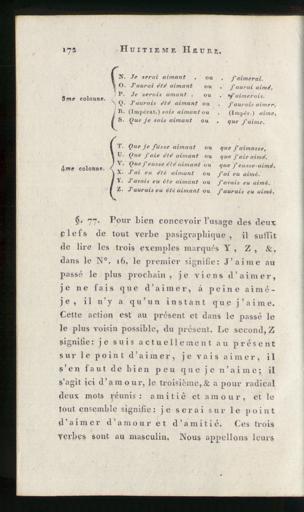 172 HUITIEME HEURE.
3me colonne.
N. Je serai aimant . ou . j'aimerai.
O. J'aurai été aimant ou . j'aurai aimé.
P. Je serois amant . ou . j'aimerois.
Q. J'aurois été aimant ou . j'aurois aimer.
R. (Impérat.) sois aimant ou . (Impér.) aime,
S. Que je sois aimant ou . que j'aime.
4me colonne.
T. Que je fusse aimant ou que j'aimasse,
U. Que j'aie été aimant ou que j'aie aimé.
V. Que j'eusse été aimant ou que j'eusse-aimé.
X. J'ai eu été aimant ou j'ai eu aimé.
Y. J'avois eu éte aimant ou j'avois eu aimé.
Z. J'aurois eu été aimant ou j'aurois eu aimé.
§. 77. Pour bien concevoir l'usage des deux
clefs de tout verbe pasigraphique, il suffit
de lire les trois exemples marqués Y, Z, &,
dans le N°. 16, le premier signifie: J'aime au
passé le plus prochain, je viens d'aimer,
je ne fais que d'aimer, à peine aimé-
je, il n'y a qu'un instant que j'aime.
Cette action est au présent et dans le passé le
le plus voisin possible, du présent. Le second, Z
signifie: je suis actuellement au présent
sur le point d'aimer, je vais aimer, il
s'en faut de bien peu que je n'aime; il
s'agit ici d'amour, le troisième, & a pour radical
deux mots réunis: amitié et amour, et le
tout ensemble signifie: je serai sur le point
d'aimer d'amour et d'amitié. Ces trois
verbes sont au masculin. Nous appellons leurs